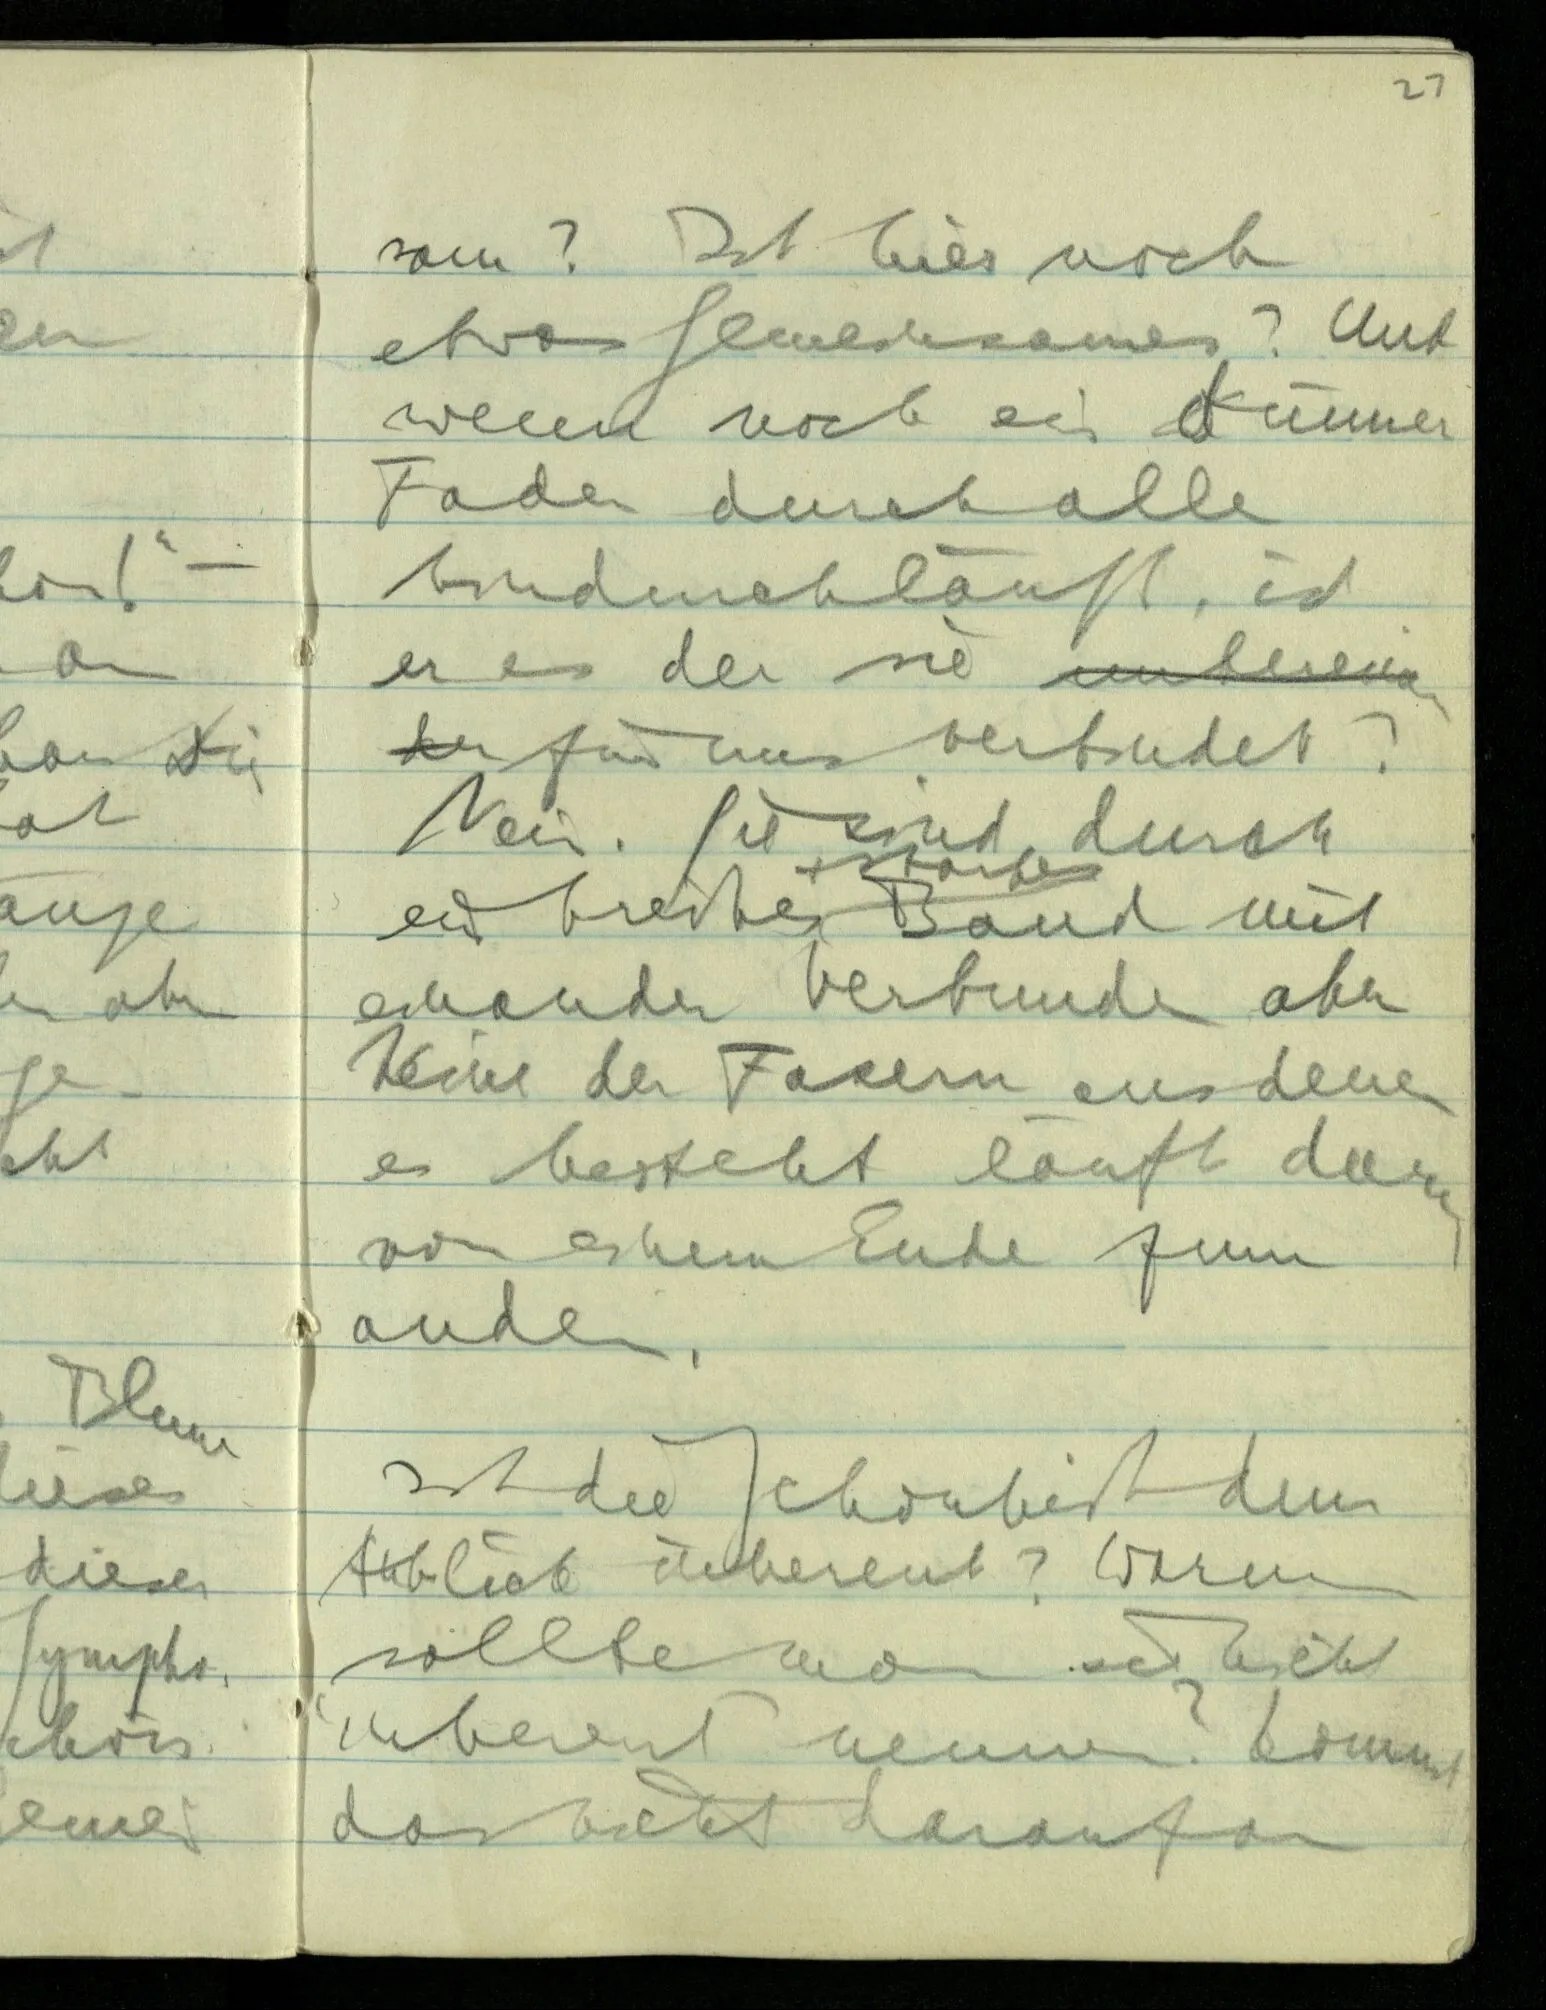 27
sam? Ist hier noch
etwas Gemeinsames? Und
wenn noch ein dünner
Faden durch alle
hindurchläuft, ist
er es der sie untereinan
der für uns verbindet?
Nein. Sie sind durch
+ starkes
ein breites Band mit
einander verbunden aber
keine der Fasern aus denen
es besteht läuft darin
von einem Ende zum
andern.
Ist die Schönheit dem
Anblick inherent? Warum
sollte man sie nicht
inherent nennen? Kommt
das nicht darauf an
Blume
dieses
dieser
Sympho-